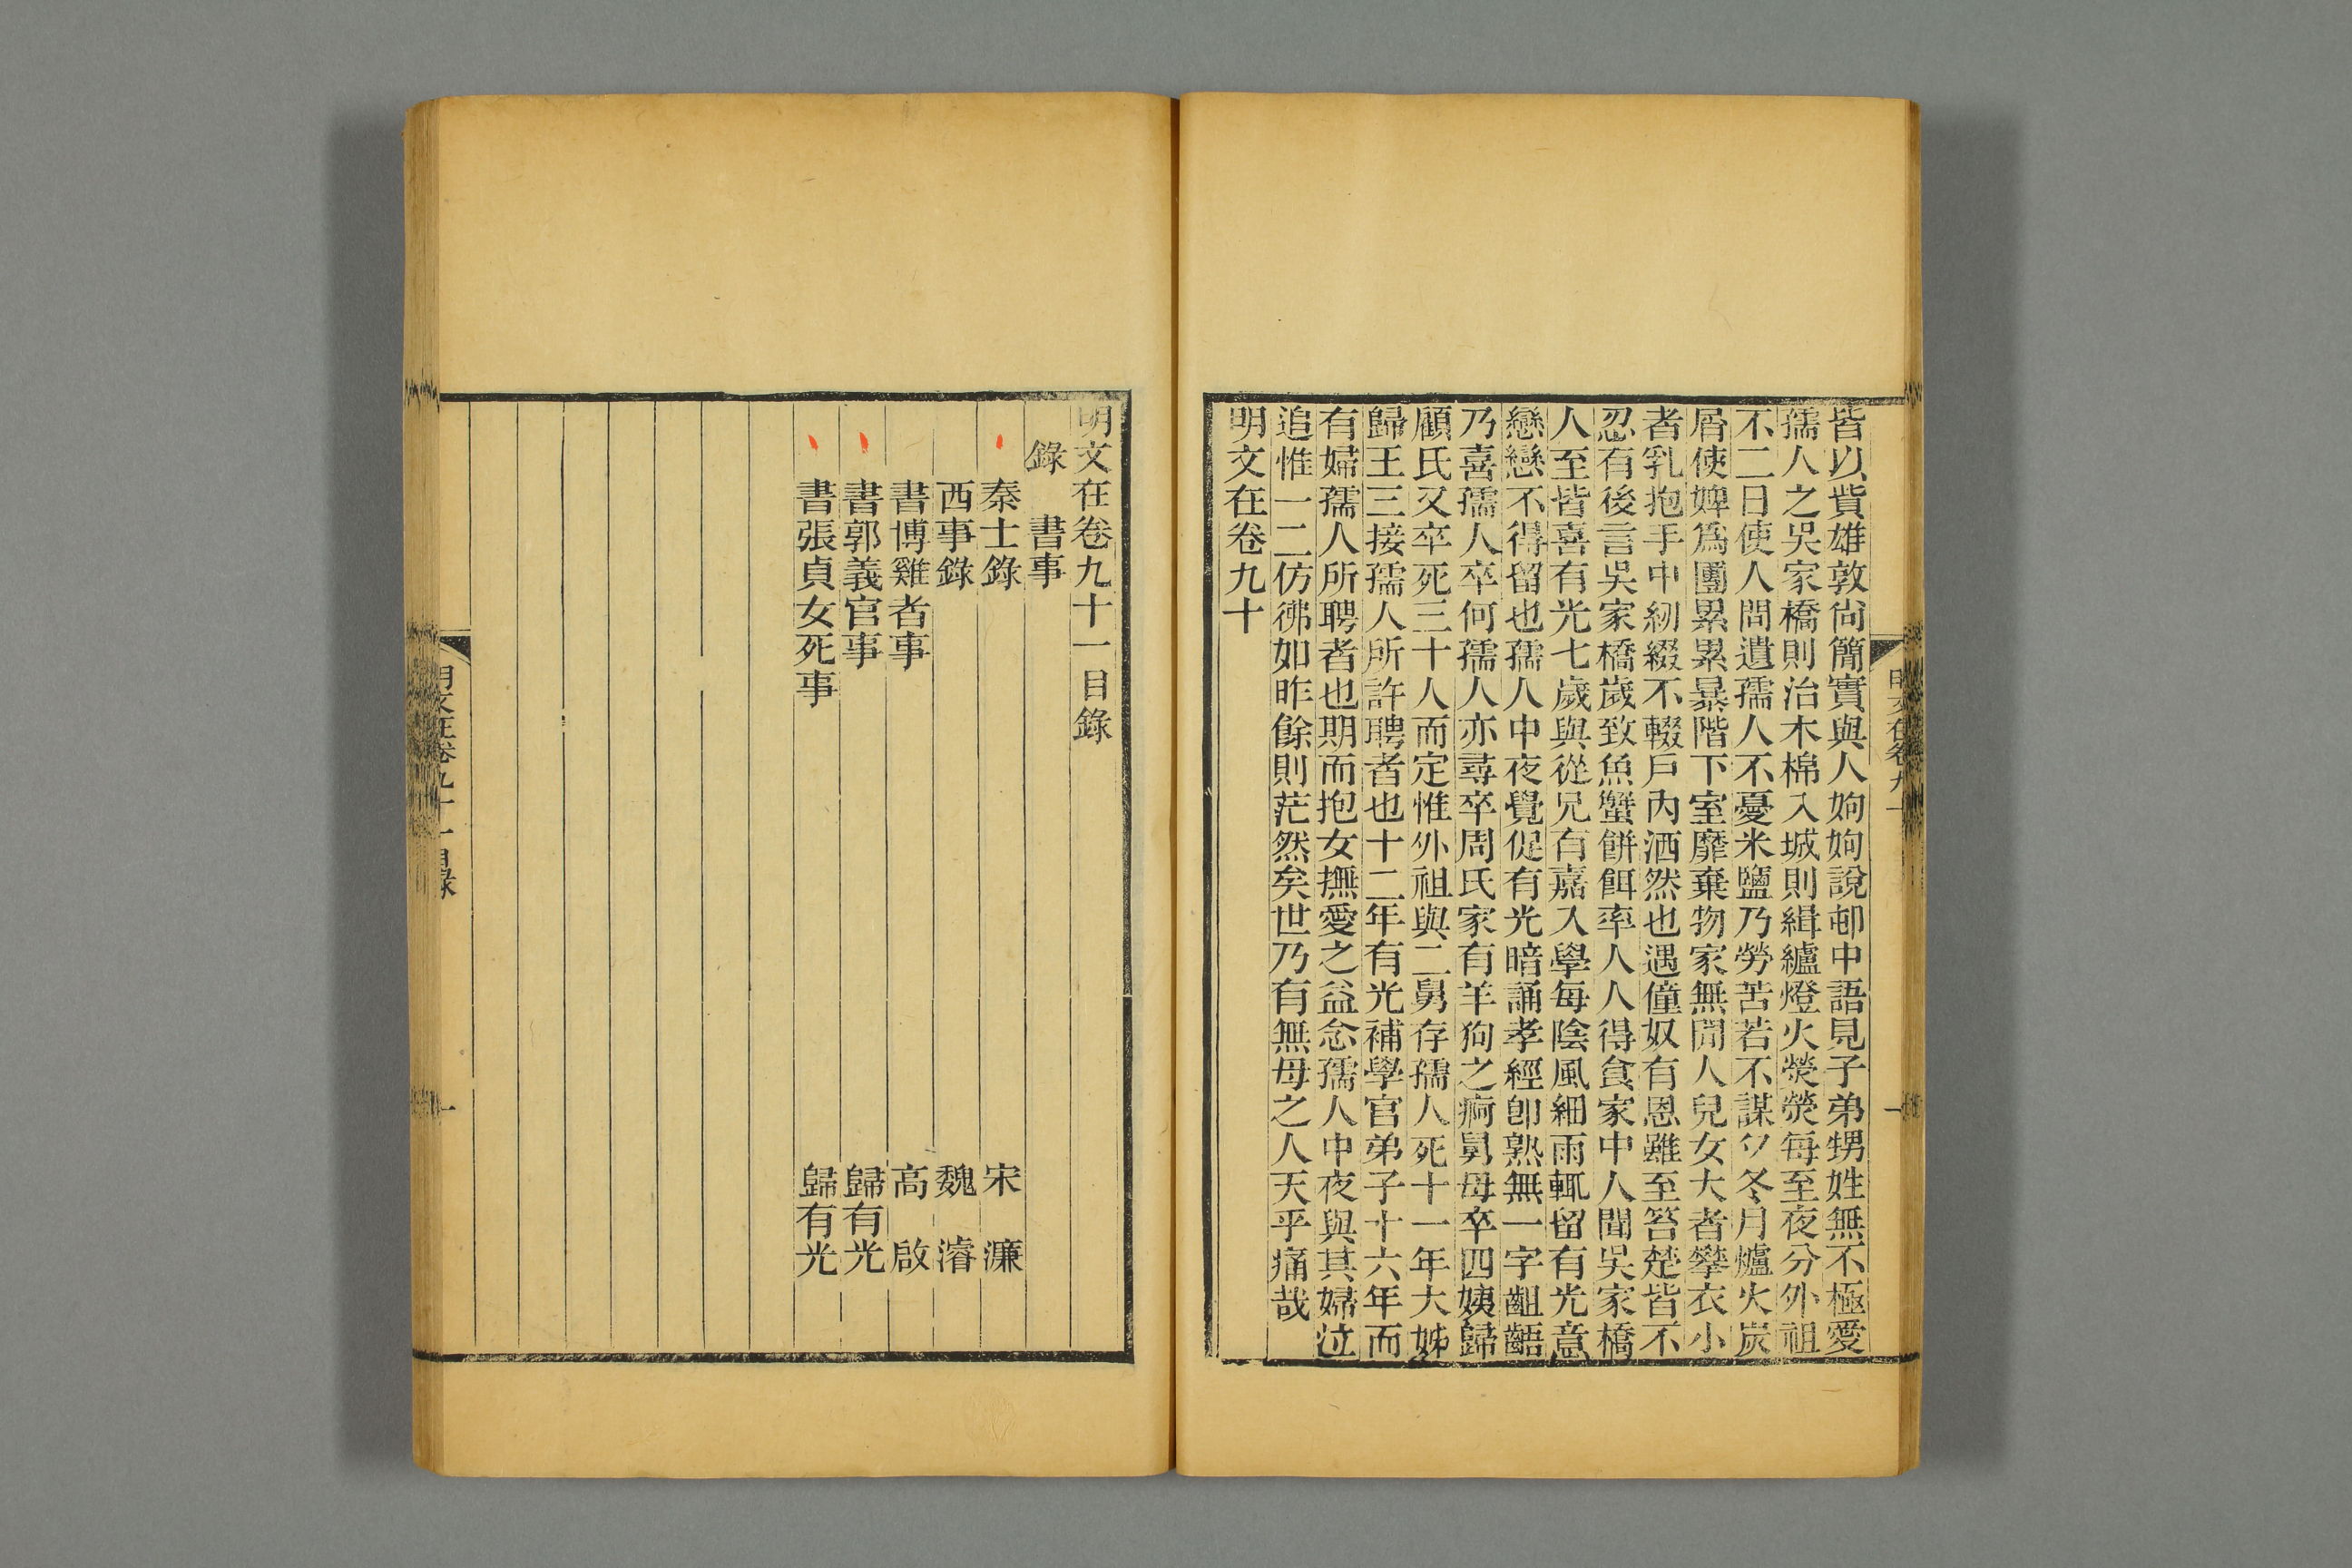 皆以貲雄敦尙簡實與人姁姁說邨中語見子弟甥姓無不極愛
孺人之吳家橋則治木棉入城則緝纑燈火熒熒每至夜分外祖
不二日使人問遺孺人不憂米鹽乃勞苦若不謀夕冬月爐火炭
屑使婢爲團累累暴階下室靡棄物家無閒人兒女大者攀衣小
者乳抱手中紉綴不輟戶內洒然也遇僮奴有恩雖至笞楚皆不
忍有後言吳家橋歲致魚蟹餠餌率人人得食家中人聞吳家橋
人至皆喜有光七歲與從兄有嘉入學每陰風細雨輒留有光意
戀戀不得留也孺人中夜覺促有光暗誦孝經卽熟無一字齟齬
乃喜孺人卒何孺人亦尋卒周氏家有羊狗之痾舅母卒四姨歸
顧氏又卒死三十人而定惟外祖與二舅存孺人死十一年大姊
歸王三接孺人所許聘者也十二年有光補學官弟子十六年而
有婦孺人所聘者也期而抱女撫愛之益念孺人中夜與其婦泣
追惟一二仿彿如昨餘則茫然矣世乃有無母之人天乎痛哉
明文在卷九十
明文在卷九十一目錄
錄　書事
秦士錄　宋濂
西事錄　魏濬
書博雞者事　高啟
書郭義官事　歸有光
書張貞女死事　歸有光
明文在卷九十一目錄　一